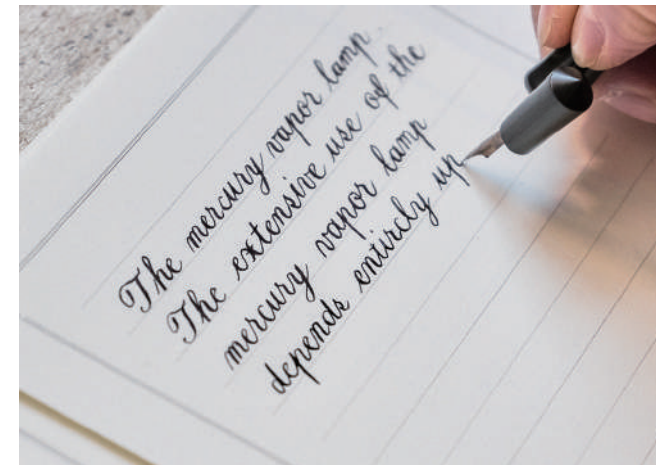 The mercury vapor lamp.
The extensive use of the
mercury vapor lamp
depends entirely up